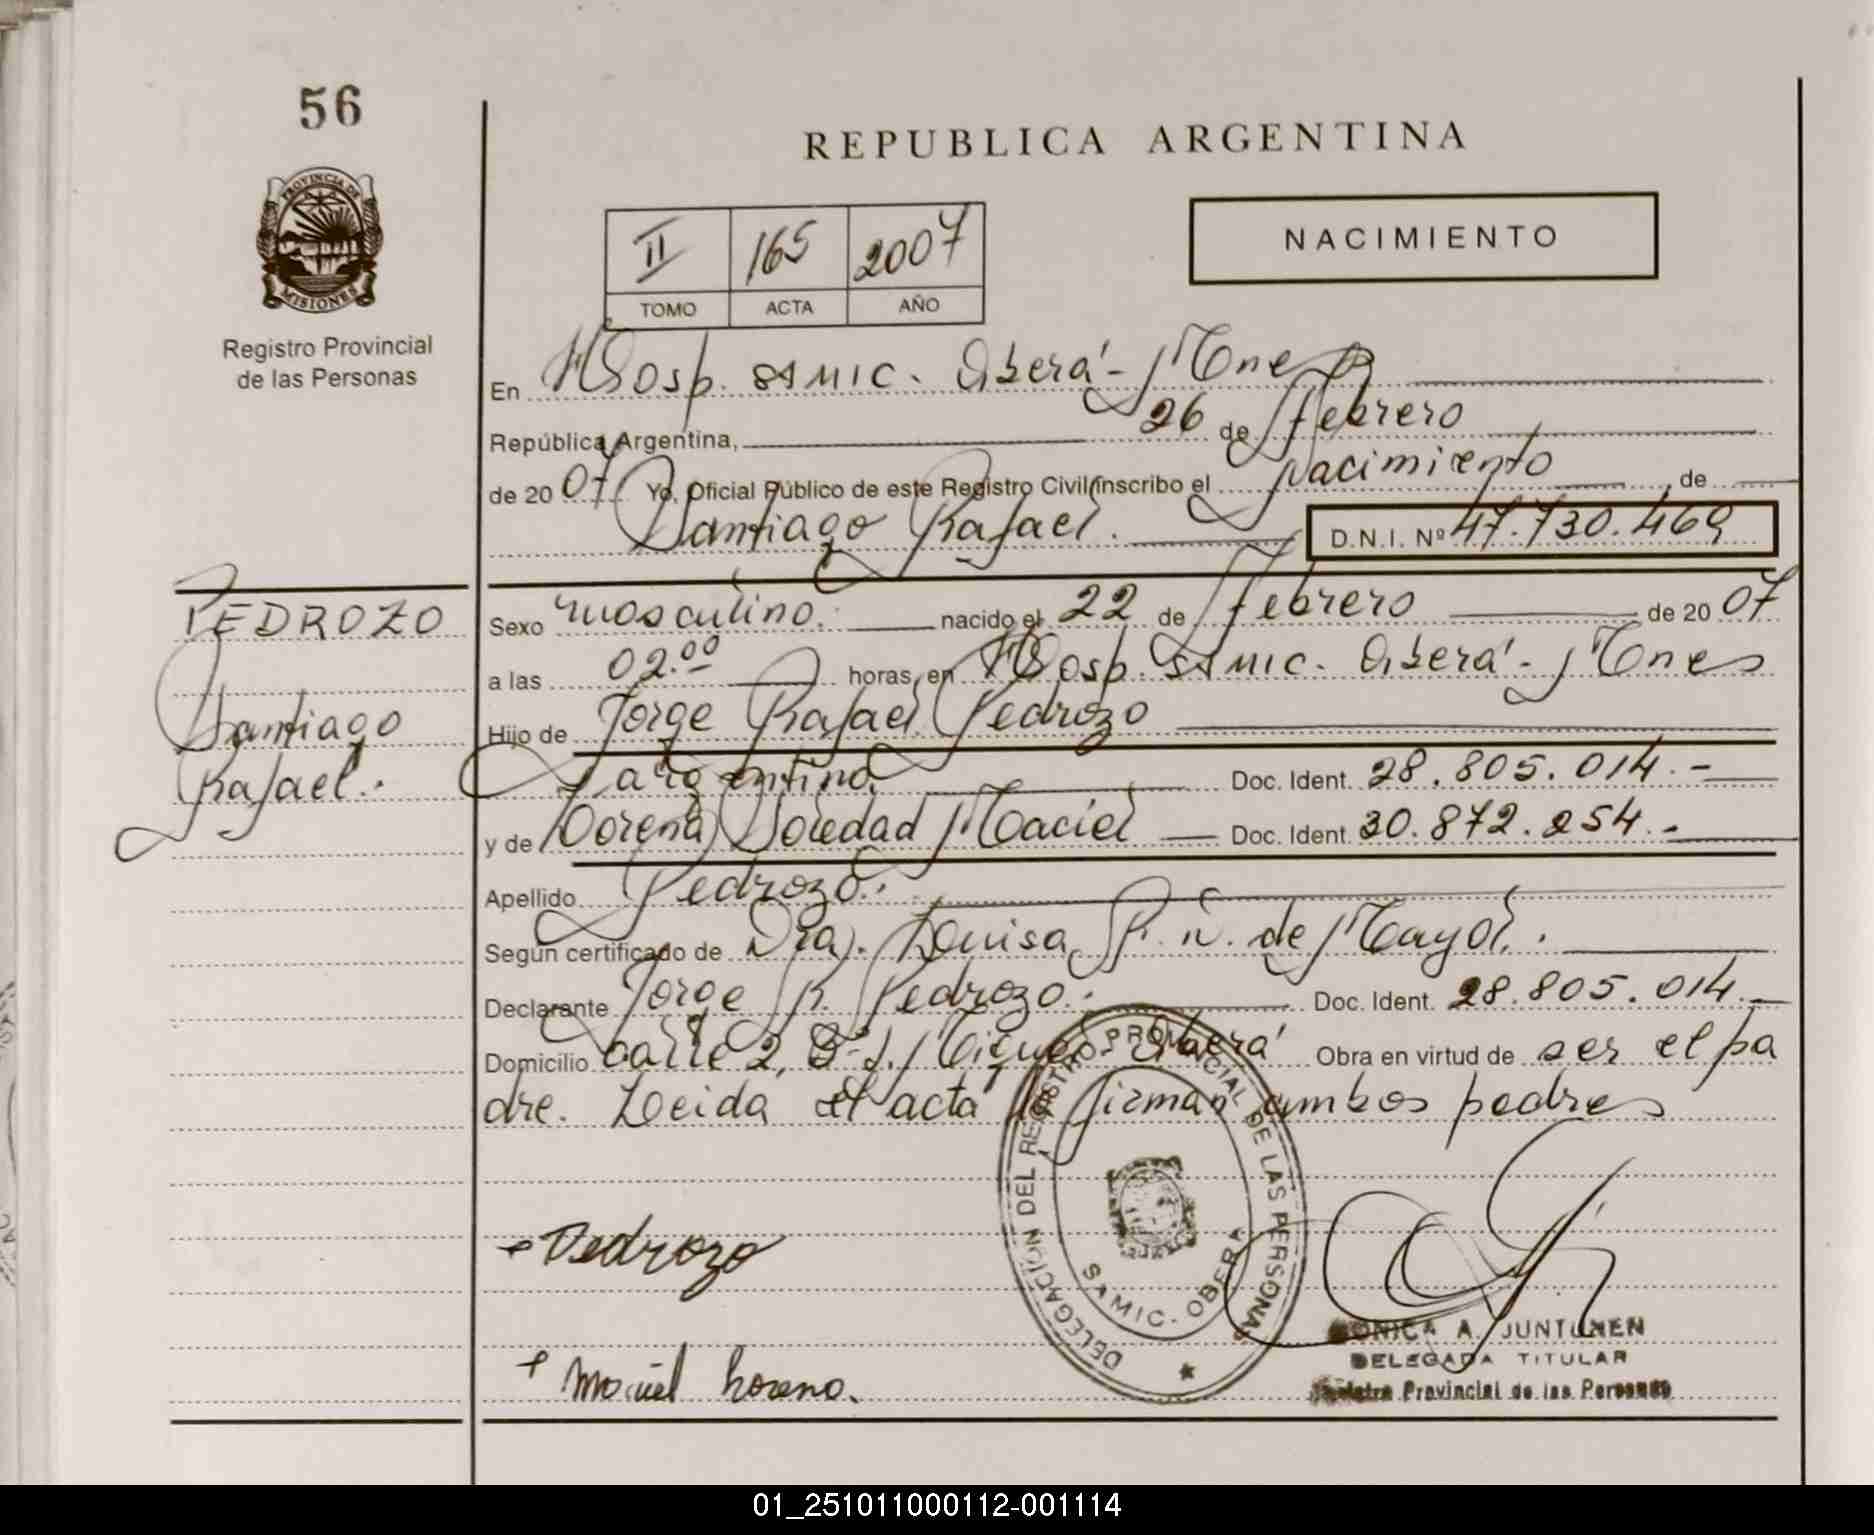 56
REPUBLICA ARGENTINA
PROVINCIA DE
MISIONES
Registro Provincial
de las Personas
NACIMIENTO
II 165 2007
TOMO ACTA AÑO
En Hosp. SAMIC. Oberá - Mnes
República Argentina, 26 de febrero
de 2007 Yo, Oficial Público de este Registro Civil inscribo el nacimiento de
Santiago Rafael. D.N.I. Nº 47.730.469
PEDROZO
Santiago
Rafael.
Sexo masculino. nacido el 22 de febrero de 2007
a las 02.00 horas, en Hosp. SAMIC. Oberá - Mnes
Hijo de Jorge Rafael Pedrozo
argentino. Doc. Ident. 28.805.014.-
y de Lorena Soledad Maciel Doc. Ident. 30.872.254.-
Apellido Pedrozo.
Según certificado de Dra. Luisa R. N. de Mayol.
Declarante Jorge R. Pedrozo. Doc. Ident. 28.805.014.-
Domicilio Calle 2, Bº S. Miguel - Oberá Obra en virtud de ser el pa
dre. Leida el acta la firman ambos padres
DELEGACION DEL REGISTRO PROVINCIAL DE LAS PERSONAS
SAMIC. OBERA
Pedrozo
Maciel Lorena.
MONICA A. JUNTUNEN
DELEGADA TITULAR
Registro Provincial de las Personas
01_251011000112-001114